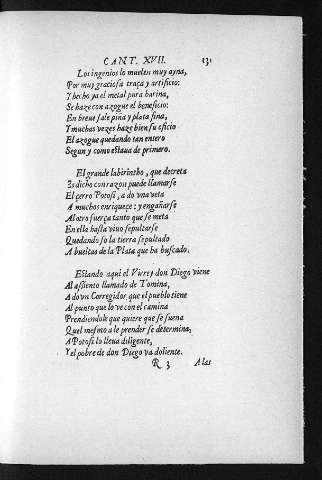 CANT. XVII. 131
Los ingenios lo muelen muy ayna,
Por muy graciosa traça y artificio:
Y hecho ya el metal para harina,
Se haze con azogue el beneficio:
En breue sale pina y plata fina,
Y muchas vezes haze bien su oficio
El azogue quedando tan entero
Segun y como estaua de primero.
El grande labirintho, que decreta
Es dicho con razon puede llamarse
El çerro Potosi, a do vna veta
A muchos enriqueçe: y engañarse
Al otro fuerça tanto que se meta
En ella hasta viuo sepultarse
Quedando so la tierra sepultado
A bueltas de la Plata que ha buscado.
Estando aqui el Virrey don Diego viene
Al assiento llamado de Tomina,
A do vn Corregidor que el pueblo tiene
Al punto que lo ve con el camina
Prendiendole que quiere que se suena
Quel mesmo a le prender se determina,
A Potosi lo lleua diligente,
Y el pobre de don Diego va doliente.
R 3 A las